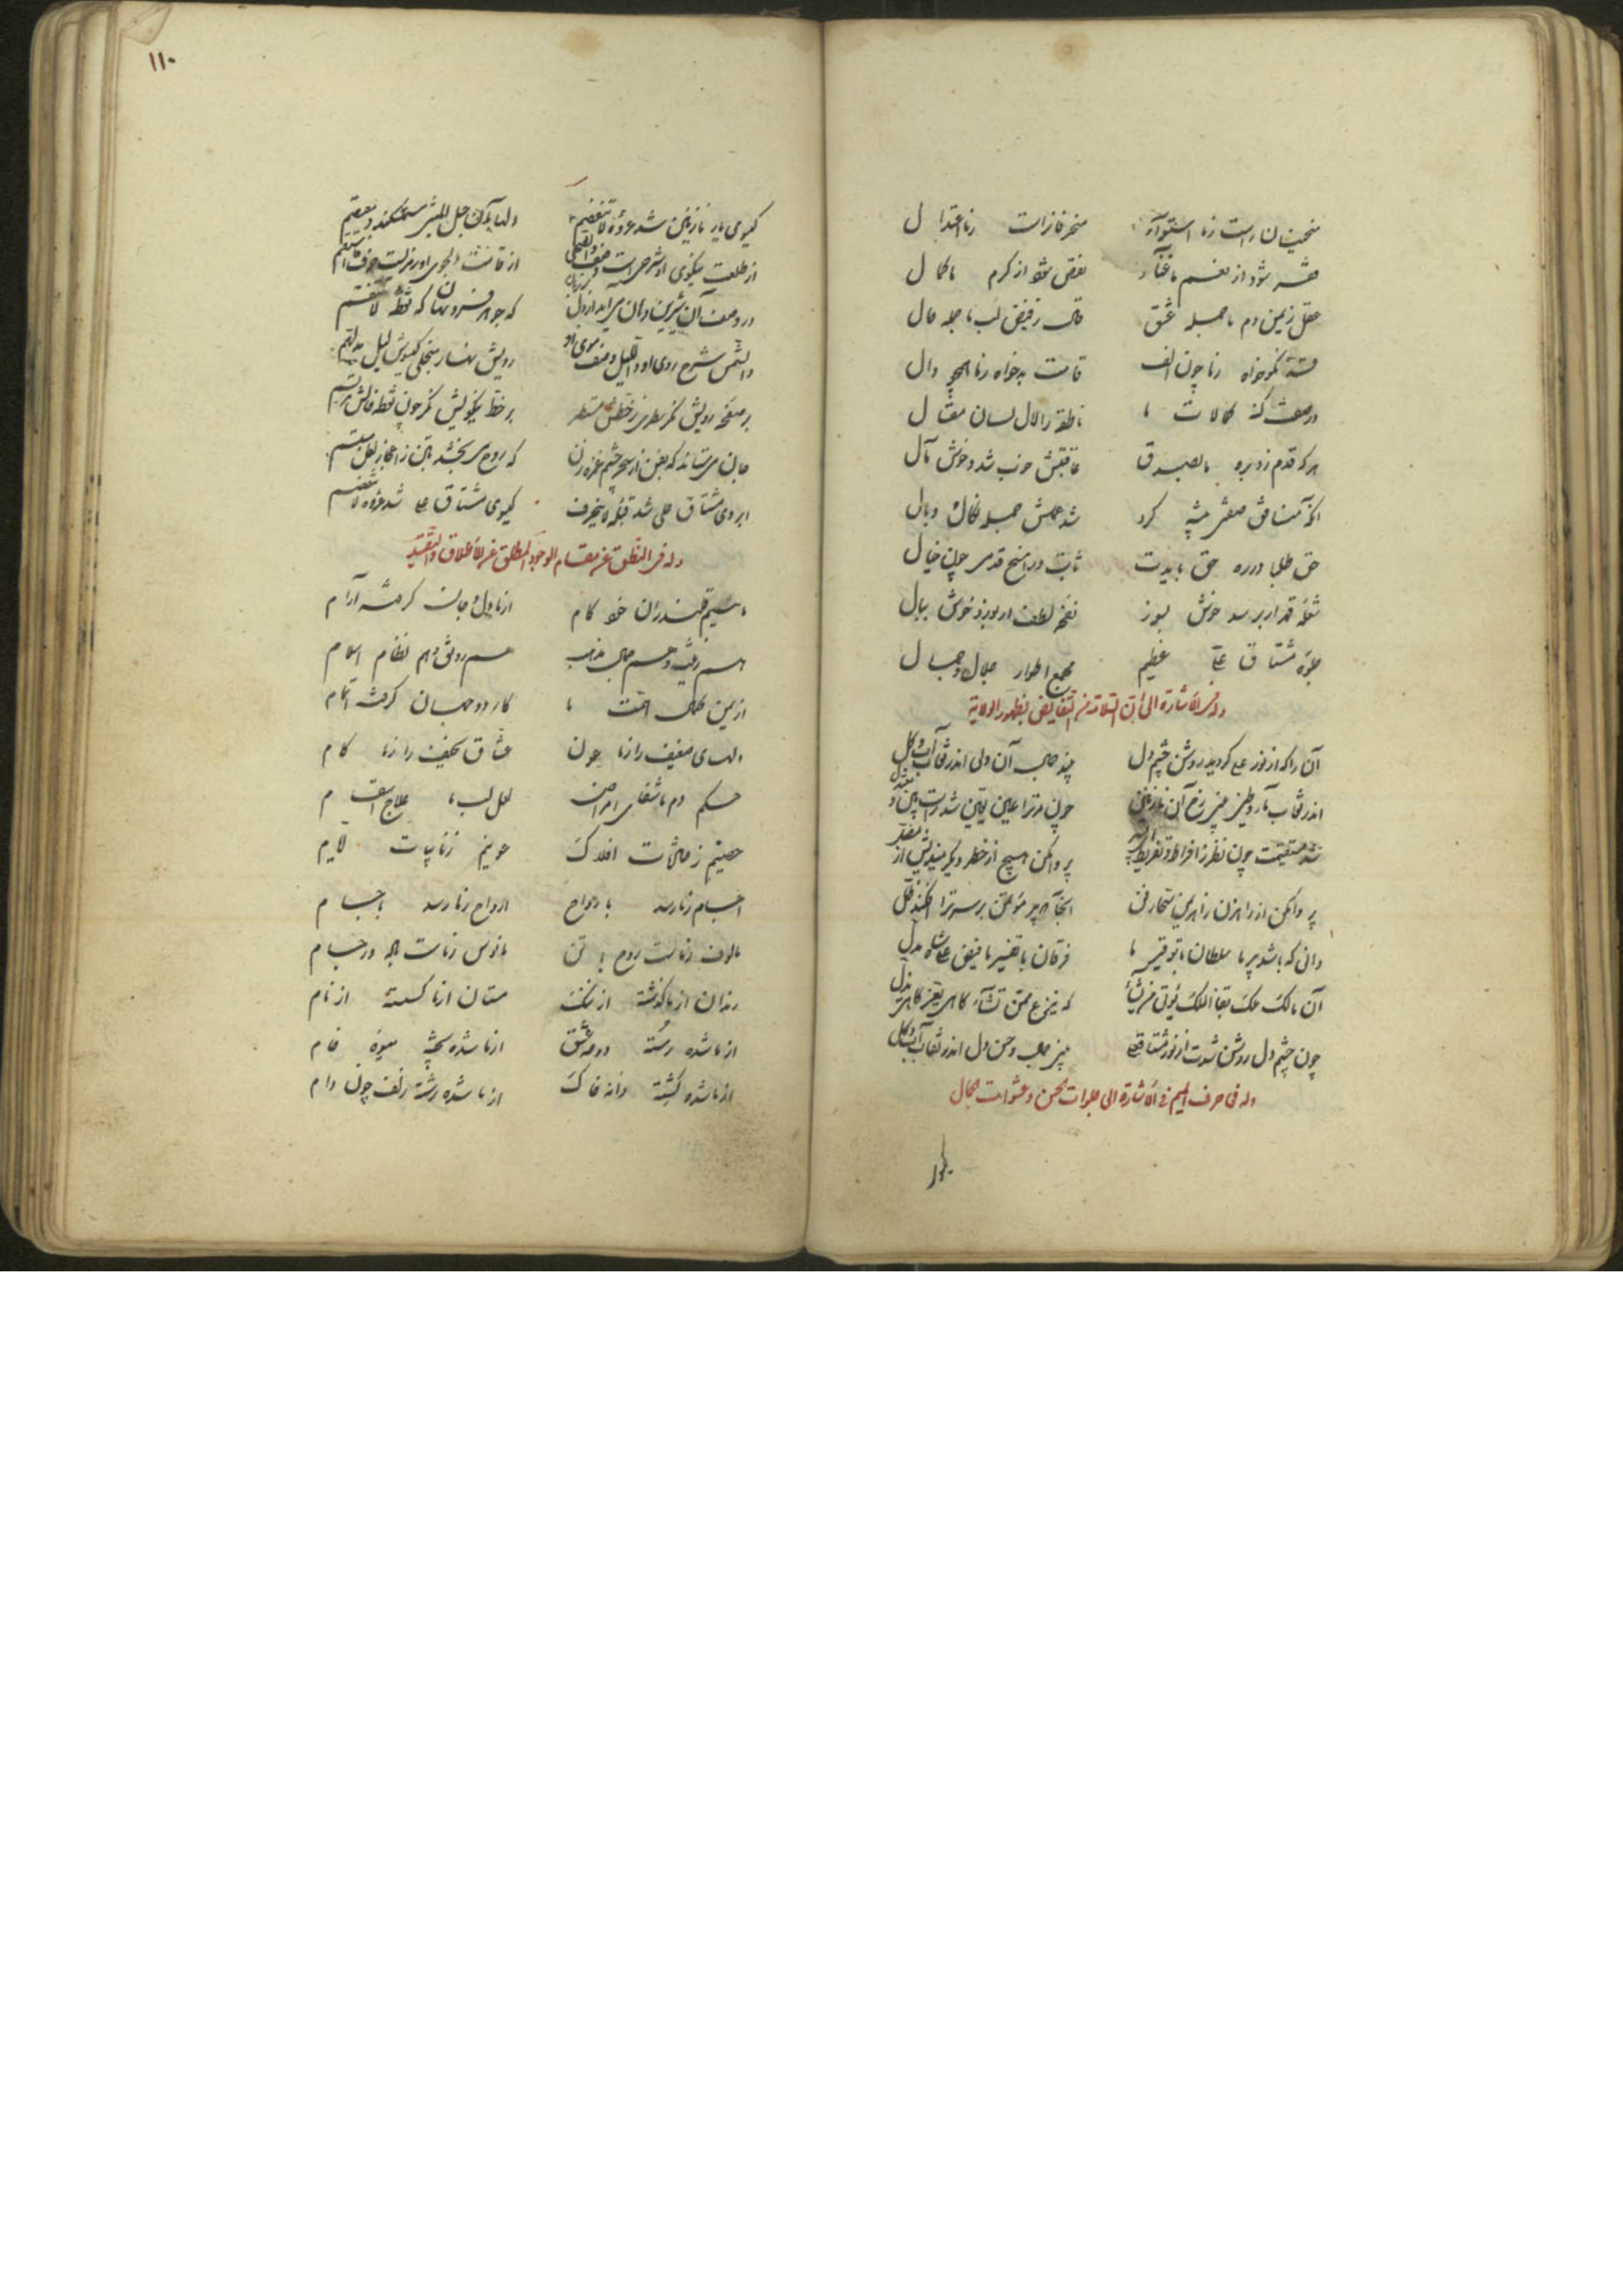 منحنیان راست ز ما استوآء منحرفانراست ز ما اعتدال
فقر شود از نعم ما غنآء نقص شود از کرم ما کمال
عقل ز یمن دم ما جمله عشق قال ز فیض لب ما جمله حال
قد نکوخواه ز ما چون الف قامت بدخواه ز ما همچو دال
در صفت کنه کمالات ما ناطقه را لال لسان مقال
هر که قدم زد بره ما بصدق عاقبتش خوب شد و خوش مآل
آنکه منافق صفتی پیشه کرد شد عملش جمله نکال و وبال
حق طلبا در ره حق بایدت ثابت و راسخ قدمی چون جبال
شعله قهر ار برسد خوش بسوز نفخه لطف ار بوزد خوش ببال
جلوه مشتاق علی عظیم مجمع اطوار جلال و جمال
وله فی الاشارة الی ان السلامة من النقایض بظهور الولایة
آن را که از نور علی گردید روشن چشم دل بیند جمال آن ولی اندر نقاب آب و گل
اندر نقاب مآء و طین بیند رخ آن نازنین چون مر ترا عین یقین شد راست بین و معتدل
شد مستقیمت چون نظر ز افراط و تفریط ای پسر پروا مکن هیچ از خطر دیگر میندیش از مضل
پروا مکن از راهزن راهی نپنجارفتن اینجا که پیر مؤتمن بر سر ترا افکند ظل
دانی که باشد پیر ما سلطان با توقیر ما فرقان با تفسیر ما فیض علی شاه مدل
آن مالک ملک بقا الملک یؤتی من یشآء که ینزع ممن تشآء کاهی یعز کاهی یذل
چون چشم دل روشن شدت از نور مشتاق علی بین جمال و حسن دل اندر نقاب آب و گل
وله فی حرف المیم فی الاشارة الی جلوات الحسن و عشوات الجمال
۱۱۰
گیسوی یار نازنین شد عروة لا تنفصم دلها بآن حبل المتین مستمسکند و معتصم
از طلعت نیکوی او شرحی است وصف والضحی از قامت دلجوی او رمزیست حرف فاستقم
در وصف آن شیرین دهان می‌آید از دل بر زبان که جوهر فرد نهان که نقطه لا تنقسم
والشمس شرح روی او واللیل وصف موی او رویش نهار منجلی گیسوش لیل مدلهم
بر صفحه رویش نگر سطری ز خطش مستطر بر خط نیکویش نگر چون نقطه خالش مرتسم
جان می‌ستاند که بفن از سحر چشم غمزه زن که روح می‌بخشد بتن ز اعجاز لعل مبتسم
ابروی مشتاق علی شد قبله لا ینحرف گیسوی مشتاق علی شد عروة لا تنفصم
وله فی النطق عن مقام الوجود المطلق عن الاطلاق و التقیید
مائیم قلندران خود کام از ما دل و جان گرفته آرام
هم زینت و هم جمال مذهب هم رونق و هم نظام اسلام
از یمن کمال همت ما کار دو جهان گرفته اتمام
دلهای ضعیف را ز ما عون عشاق نحیف را ز ما کام
حکم دم ما شفای امراض لعل لب ما علاج اسقام
جستیم ز حادثات افلاک عونیم ز نایبات لایم
اجسام ز ما رسد بارواح ارواح ز ما رسد باجسام
مالوف ز ماست روح با تن مانوس ز ماست باده در جام
رندان از ما گذشته از ننگ مستان از ما گسسته از نام
از ما شده رسته دوحه عشق از ما شده پخته میوه خام
از ما شده کشته دانه خاک از ما شده رشته زلف چون دام